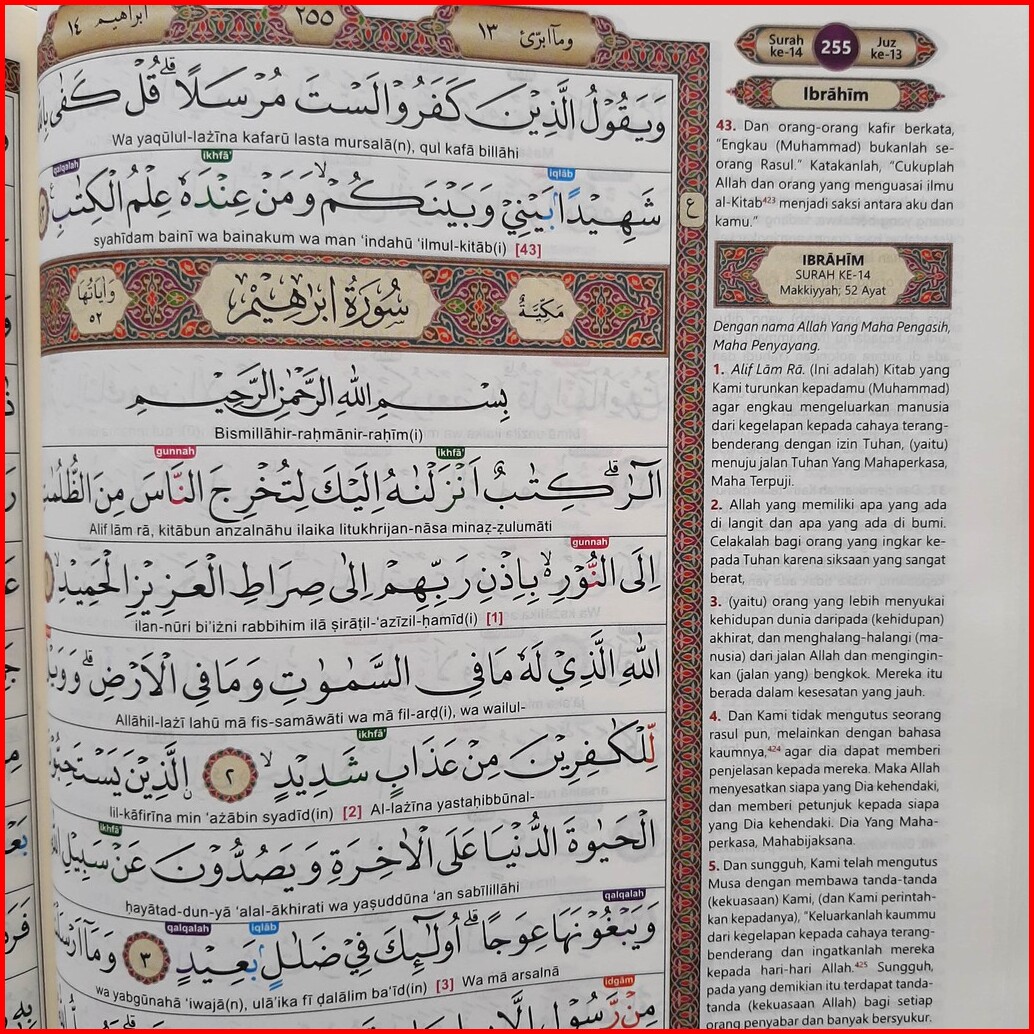 ابراهيم ١٤
٢٥٥
وماۤابرّئ ١٣
وَيَقُوْلُ الَّذِيْنَ كَفَرُوْا لَسْتَ مُرْسَلًاۗ قُلْ كَفٰى
Wa yaqūlul-lażīna kafarū lasta mursalā(n), qul kafā billāhi
qalqalah
ikhfā'
iqlāb
شَهِيْدًاۢ بَيْنِيْ وَبَيْنَكُمْۙ وَمَنْ عِنْدَهٗ عِلْمُ الْكِتٰبِ
ع
syahīdam bainī wa bainakum wa man 'indahū 'ilmul-kitāb(i) [43]
مَكِّيَّةٌ
سُوْرَةُ اِبْرٰهِيْمَ
وَاٰيَاتُهَا
٥٢
بِسْمِ اللّٰهِ الرَّحْمٰنِ الرَّحِيْمِ
Bismillāhir-raḥmānir-raḥīm(i)
gunnah
ikhfā'
الۤرٰۗ كِتٰبٌ اَنْزَلْنٰهُ اِلَيْكَ لِتُخْرِجَ النَّاسَ مِنَ الظُّلُمٰتِ
Alif lām rā, kitābun anzalnāhu ilaika litukhrijan-nāsa minaẓ-ẓulumāti
gunnah
اِلَى النُّوْرِ ەۙ بِاِذْنِ رَبِّهِمْ اِلٰى صِرَاطِ الْعَزِيْزِ الْحَمِيْدِۙ
ilan-nūri bi'iżni rabbihim ilā ṣirāṭil-'azīzil-ḥamīd(i) [1]
اللّٰهِ الَّذِيْ لَهٗ مَا فِى السَّمٰوٰتِ وَمَا فِى الْاَرْضِۗ
Allāhil-lażī lahū mā fis-samāwāti wa mā fil-arḍ(i), wa wailul-
ikhfā'
لِّلْكٰفِرِيْنَ مِنْ عَذَابٍ شَدِيْدٍۙ ٢ ۨالَّذِيْنَ
lil-kāfirīna min 'ażābin syadīd(in) [2] Al-lażīna yastaḥibbūnal-
ikhfā'
الْحَيٰوةَ الدُّنْيَا عَلَى الْاٰخِرَةِ وَيَصُدُّوْنَ عَنْ سَبِيْلِ
ḥayātad-dun-yā 'alal-ākhirati wa yaṣuddūna 'an sabīlillāhi
qalqalah
iqlāb
qalqalah
وَيَبْغُوْنَهَا عِوَجًاۗ اُولٰۤىِٕكَ فِيْ ضَلٰلٍۢ بَعِيْدٍ ٣ وَمَآ
wa yabgūnahā 'iwajā(n), ulā'ika fī ḍalālim ba'īd(in) [3] Wa mā arsalnā
idgām
مِنْ رَّسُوْلٍ
Surah ke-14
255
Juz ke-13
Ibrāhīm
43. Dan orang-orang kafir berkata,
"Engkau (Muhammad) bukanlah se-
orang Rasul." Katakanlah, "Cukuplah
Allah dan orang yang menguasai ilmu
al-Kitab423 menjadi saksi antara aku dan
kamu."
IBRĀHĪM
SURAH KE-14
Makkiyyah; 52 Ayat
Dengan nama Allah Yang Maha Pengasih,
Maha Penyayang.
1. Alif Lām Rā. (Ini adalah) Kitab yang
Kami turunkan kepadamu (Muhammad)
agar engkau mengeluarkan manusia
dari kegelapan kepada cahaya terang-
benderang dengan izin Tuhan, (yaitu)
menuju jalan Tuhan Yang Mahaperkasa,
Maha Terpuji.
2. Allah yang memiliki apa yang ada
di langit dan apa yang ada di bumi.
Celakalah bagi orang yang ingkar ke-
pada Tuhan karena siksaan yang sangat
berat,
3. (yaitu) orang yang lebih menyukai
kehidupan dunia daripada (kehidupan)
akhirat, dan menghalang-halangi (ma-
nusia) dari jalan Allah dan mengingin-
kan (jalan yang) bengkok. Mereka itu
berada dalam kesesatan yang jauh.
4. Dan Kami tidak mengutus seorang
rasul pun, melainkan dengan bahasa
kaumnya,424 agar dia dapat memberi
penjelasan kepada mereka. Maka Allah
menyesatkan siapa yang Dia kehendaki,
dan memberi petunjuk kepada siapa
yang Dia kehendaki. Dia Yang Maha-
perkasa, Mahabijaksana.
5. Dan sungguh, Kami telah mengutus
Musa dengan membawa tanda-tanda
(kekuasaan) Kami, (dan Kami perintah-
kan kepadanya), "Keluarkanlah kaummu
dari kegelapan kepada cahaya terang-
benderang dan ingatkanlah mereka
kepada hari-hari Allah.425 Sungguh,
pada yang demikian itu terdapat tanda-
tanda (kekuasaan Allah) bagi setiap
orang penyabar dan banyak bersyukur.